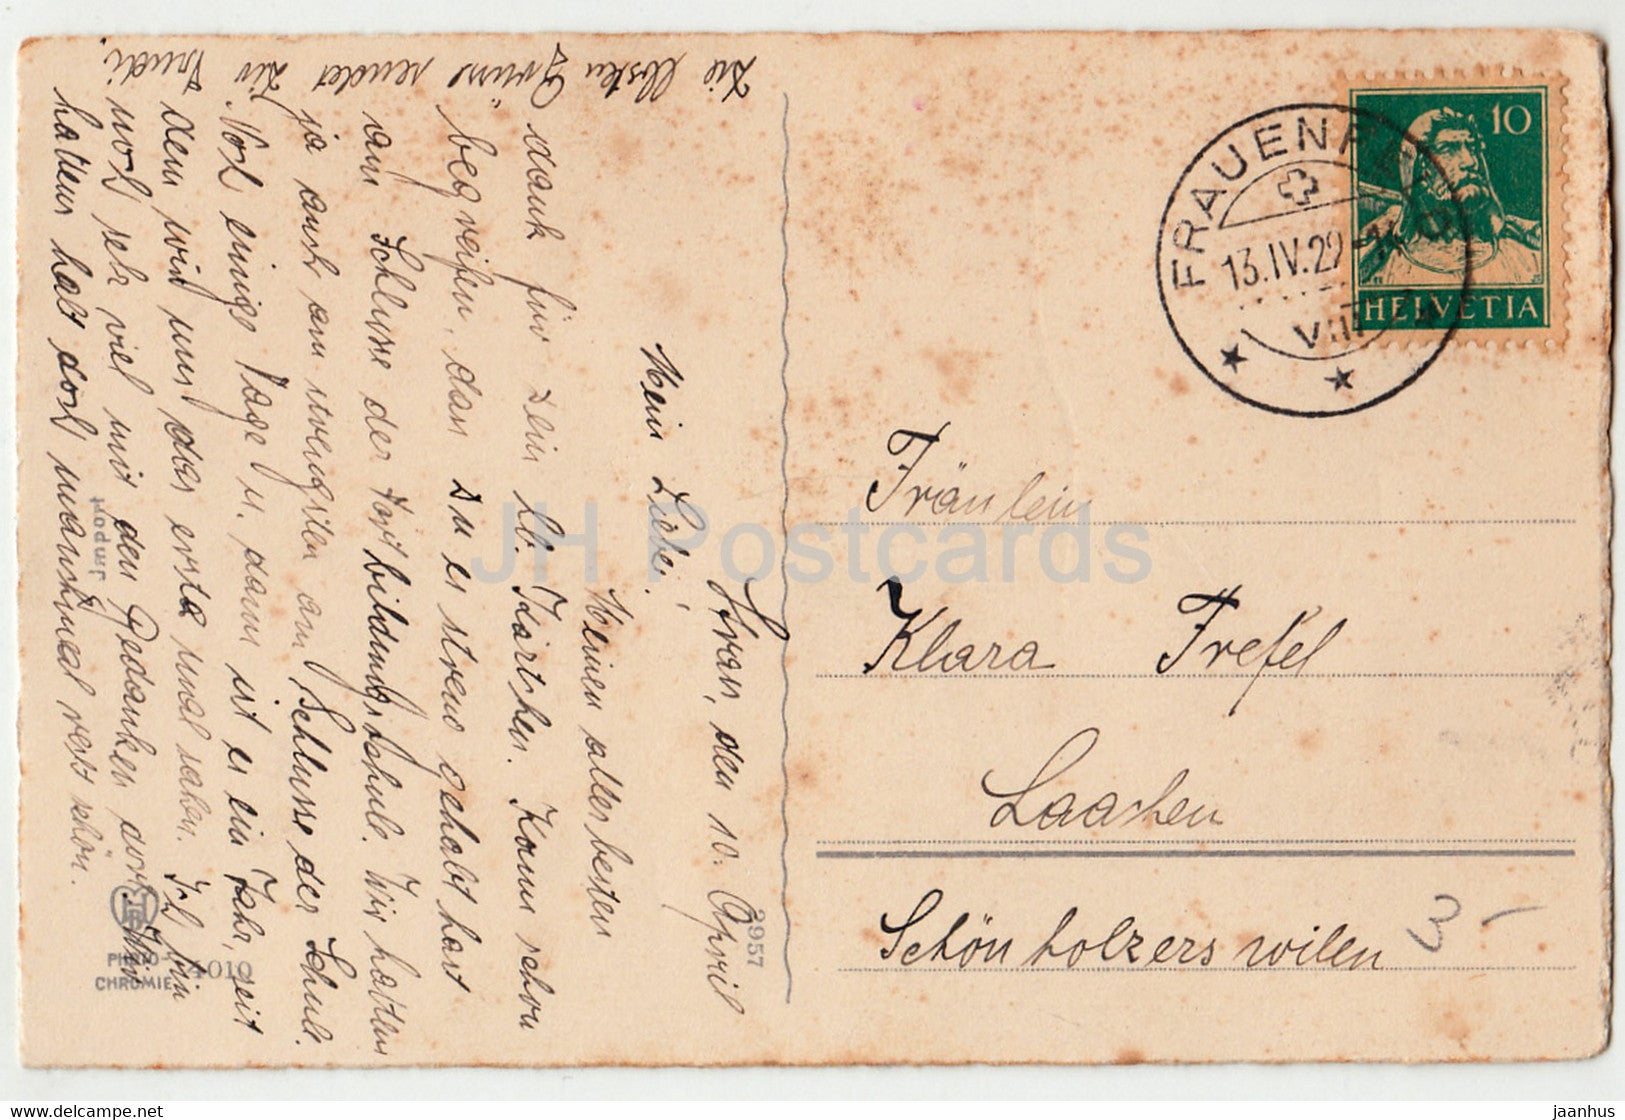 Stran, den 10. April
Mein Liebei,
Meinen allerbesten
dank für Dein lb. Kärtchen. Kann schon
begreifen, dan Du es streng gehabt hast
am Schlusse der Fortbildungsschule. Wir hatten
ja auch am strengsten am Schlusse der Schule.
Noch einige Tage u. dann ist es ein Jahr, seit
dem wir uns das erste mal sahen. Ich bin
noch sehr viel mit den Gedanken dort. Wir
hatten halt doch manchmal recht schön.
Die besten Grüsse sendet Dir
Trudi.
Import
PHOTO-
CHROMIE
4010
2957
FRAUENFELD
13.IV.29-14
VIII
10
HELVETIA
Fräulein
Klara Trefel
Laachen
Schönholzerswilen
3-
JH Postcards
www.delcampe.net
jaanhus